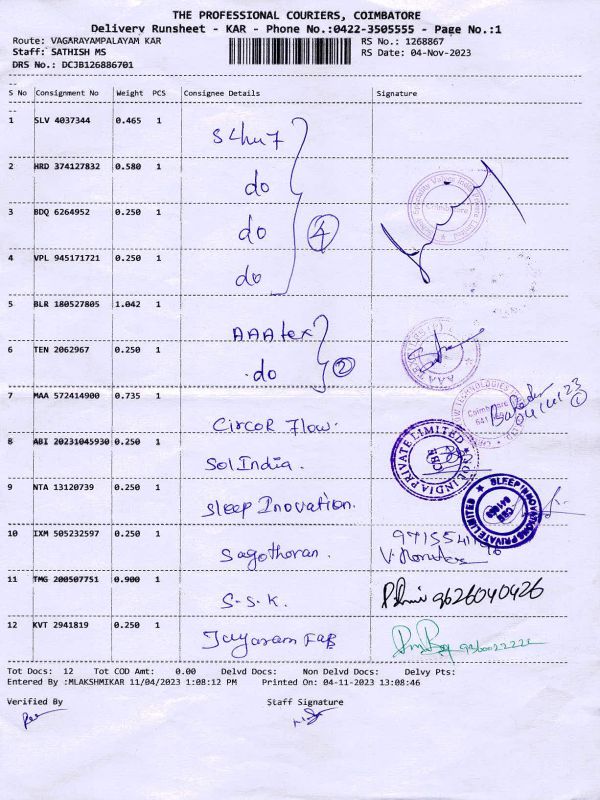 THE PROFESSIONAL COURIERS, COIMBATORE
Delivery Runsheet - KAR - Phone No.:0422-3505555 - Page No.:1
Route: VAGARAYAMPALAYAM KAR RS No.: 1268867
Staff: SATHISH MS RS Date: 04-Nov-2023
DRS No.: DCJB126886701
S No Consignment No Weight PCS Consignee Details Signature
1 SLV 4037344 0.465 1
2 HRD 374127832 0.580 1 do
3 BDQ 6264952 0.250 1 do
4 VPL 945171721 0.250 1 do
4
5 BLR 180527805 1.042 1 AAA tex
6 TEN 2062967 0.250 1 do
2
7 MAA 572414900 0.735 1 Circor Flow.
04/11/23
1
8 ABI 20231045930 0.250 1 Sol India.
SOL INDIA PRIVATE LIMITED
CBE
9 NTA 13120739 0.250 1 Sleep Inovation.
SLEEP INNOVATIONS PRIVATE LIMITED
10 IXM 505232597 0.250 1 Sagothoran.
11 TMG 200507751 0.900 1 S.S.K. 9626040426
12 KVT 2941819 0.250 1 Jayaram Fab
Tot Docs: 12 Tot COD Amt: 0.00 Delvd Docs: Non Delvd Docs: Delvy Pts:
Entered By :MLAKSHMIKAR 11/04/2023 1:08:12 PM Printed On: 04-11-2023 13:08:46
Verified By Staff Signature